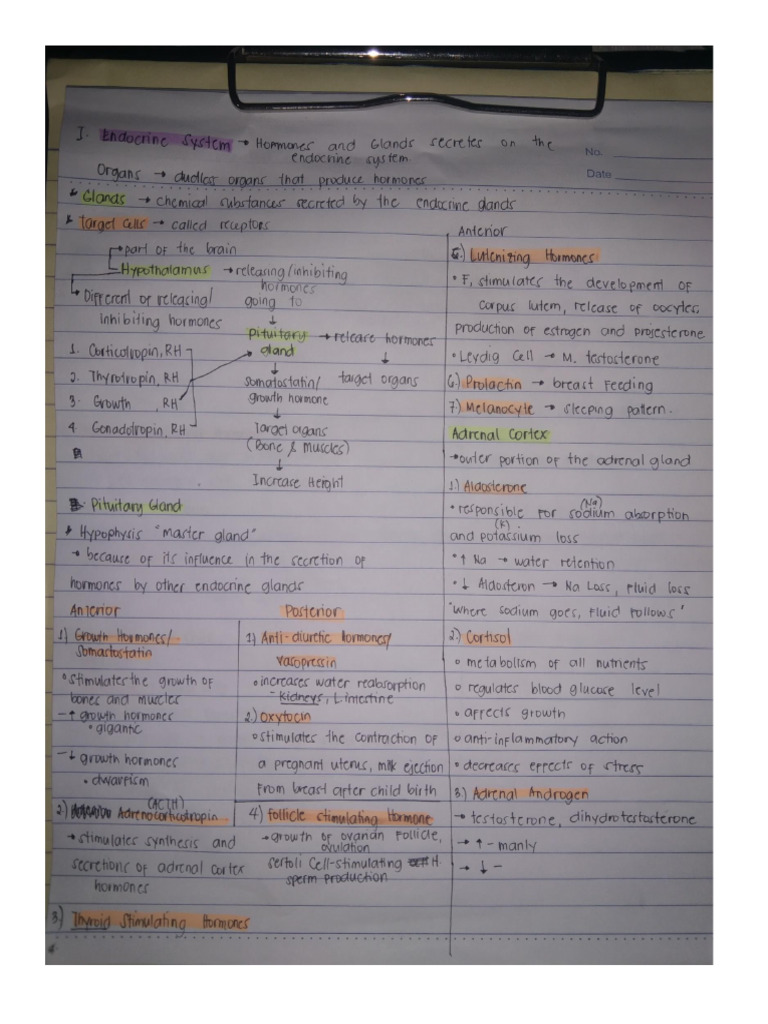 I. Endocrine System → Hormones and Glands secretes on the
endocrine system
No.
Date
Organs → ductless organs that produce hormones
* Glands → chemical substances secreted by the endocrine glands
* Target Cells → called receptors
→ part of the brain
Hypothalamus → releasing/inhibiting
hormones
going to
→ Different of releasing/
Inhibiting hormones
1. Corticotropin, RH
2. Thyrotropin, RH
3. Growth , RH
4. Gonadotropin, RH
Pituitary → release hormones
gland
↓
target organs
↓
somatostatin/
growth hormone
↓
Target organs
(Bone & Muscles)
↓
Increase Height
Pituitary Gland
* Hypophysis "master gland"
→ because of its influence in the secretion of
hormones by other endocrine glands
Anterior
1) Growth Hormones/
Somastostatin
• stimulates the growth of
bones and muscles
- ↑ growth hormones
• gigantic
- ↓ growth hormones
• dwarfism
2) Adrenocorticotropin (ACTH)
→ stimulates synthesis and
secretions of adrenal cortex
hormones
3) Thyroid Stimulating Hormones
Posterior
1) Anti-diuretic hormones/
vasopressin
• increases water reabsorption
- kidneys, L.intestine
2) Oxytocin
• stimulates the contraction of
a pregnant uterus, milk ejection
from breast after child birth
4) follicle stimulating Hormone
→ growth of ovarian follicle,
ovulation
sertoli Cell-stimulating H.
sperm production
Anterior
5.) Lutenizing Hormones
• F, stimulates the development of
corpus lutem, release of oocytes,
production of estrogen and projesterone
• Leydig Cell → M. testosterone
6.) Prolactin → breast Feeding
7) Melanocyte → sleeping pattern.
Adrenal Cortex
→ outer portion of the adrenal gland
1.) Aldosterone
• responsible for sodium (Na) absorption
and potassium (K) loss
• ↑ Na → water retention
• ↓ Aldosteron → Na Loss, Fluid loss
"where sodium goes, fluid follows"
2.) Cortisol
• metabolism of all nutrients
• regulates blood glucose level
• affects growth
• anti-inflammatory action
• decreases effects of stress
3) Adrenal Androgen
→ testosterone, dihydrotestosterone
→ ↑ - manly
→ ↓ -